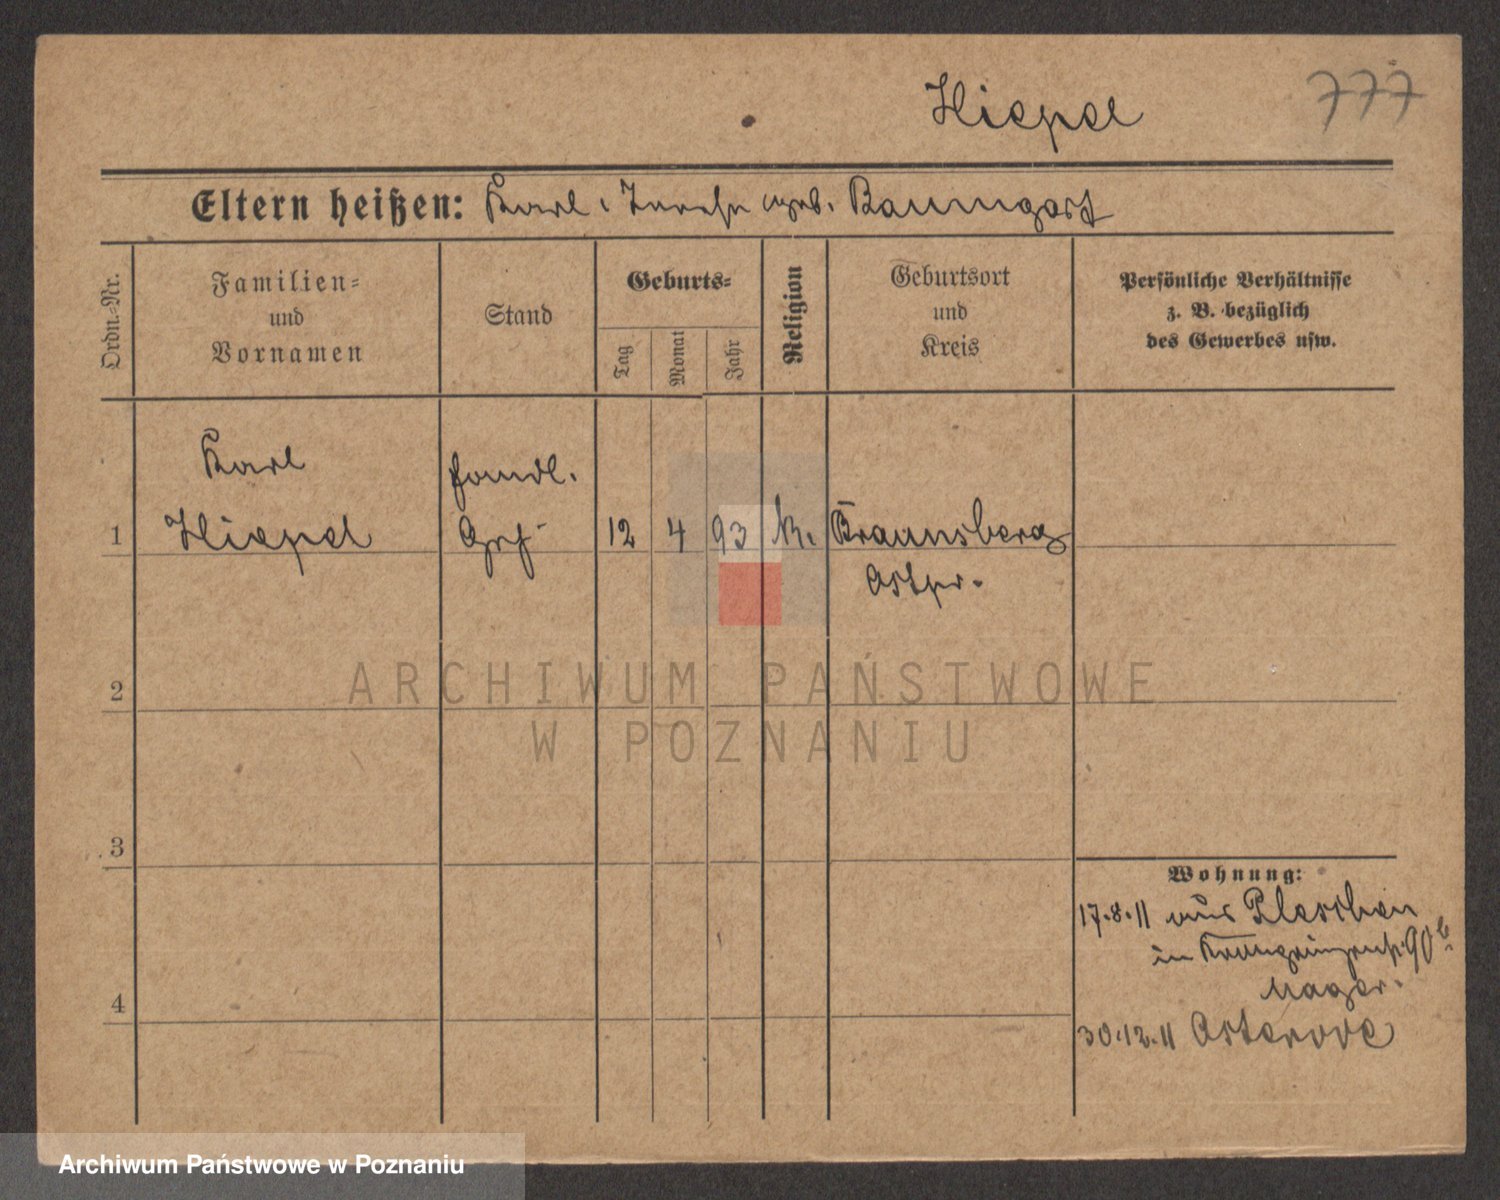 Hiepel
777
Eltern heißen: Karl, Therese geb. Baumgart
Ordn.-Nr.
Familien-
und
Vornamen
Stand
Geburts-
Tag
Monat
Jahr
Religion
Geburtsort
und
Kreis
Persönliche Verhältnisse
z. B. bezüglich
des Gewerbes usw.
Karl
handl.
1 Hiepel Geh 12 4 93 k. Braunsberg
Ostpr.
ARCHIWUM PAŃSTWOWE
2
W POZNANIU
3
Wohnung:
17.8.11 aus Pleschen
in Kronprinzenstr. 90
4
30.12.11 Osterode
Archiwum Państwowe w Poznaniu